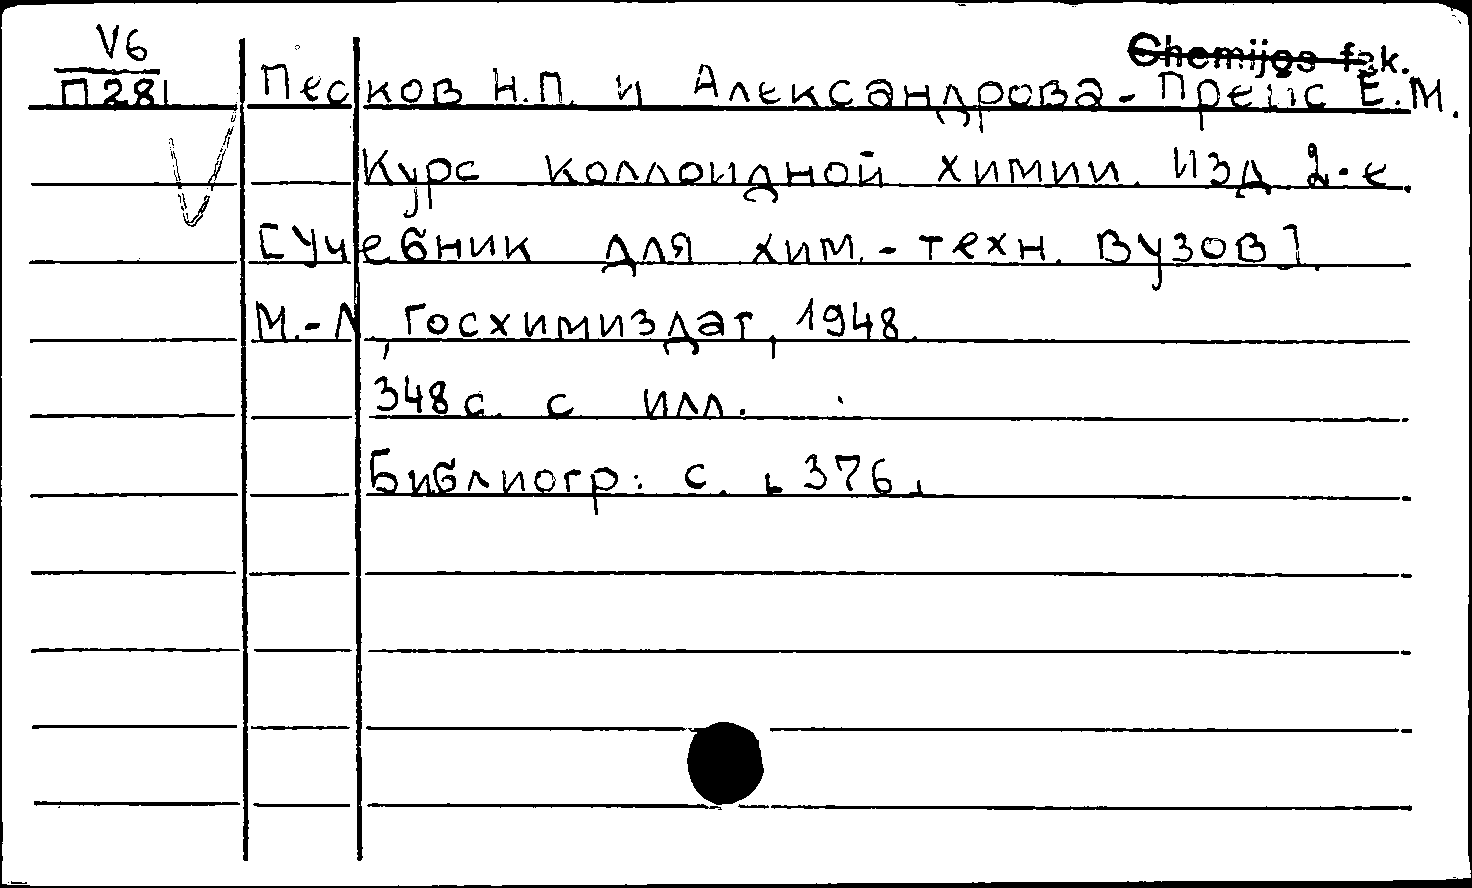 V6
Chemijos fak.
П281
Песков Н.П. и Александрова-Прейс Е.М.
Курс коллоидной химии. Изд 2-е.
[Учебник для хим.-техн. вузов].
М.-Л, Госхимиздат, 1948.
348с. с илл.
Библиогр: с. 376